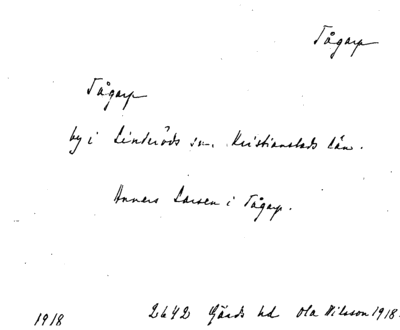 Tågarp
Tågarp
by i Linderöds sn. Kristianstads län.
Anners Larsen i Tågarp.
1918 2642 Gärds hd Ola Nilsson 1918.